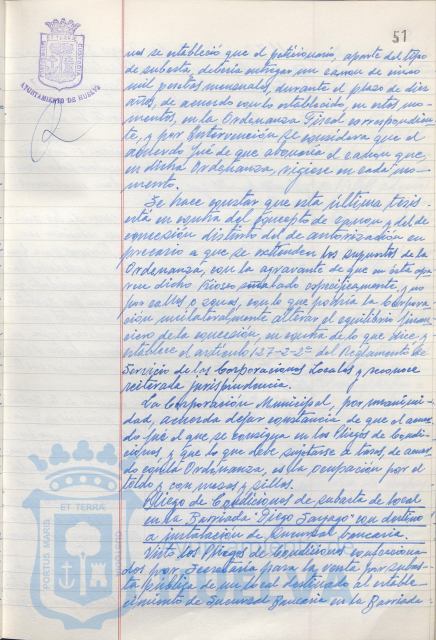 51
AYUNTAMIENTO DE HUELVA
nes se estableció que el peticionario, aparte del tipo
de subasta, debería entregar un canon de cinco
mil pesetas mensuales, durante el plazo de diez
años, de acuerdo con lo establecido, en estos mo-
mentos, en la Ordenanza Fiscal correspondien-
te, y por Intervención se considera que el
acuerdo fué de que abonaría el canon que,
en dicha Ordenanza, rigiese en cada mo-
mento.
Se hace constar que esta última tesis
está en contra del concepto de canon y del de
concesión distinto del de autorización en
precario a que se extienden los supuestos de la
Ordenanza, con la agravante de que en ésta apa-
rece dicho Kiosco instalado específicamente, y no
por calles o zonas, con lo que podría la Corpora-
ción unilateralmente alterar el equilibrio finan-
ciero de la concesión, en contra de lo que dice y
establece el artículo 127-2-2º del Reglamento de
Servicio de las Corporaciones Locales y reconoce
reiterada jurisprudencia.
La Corporación Municipal, por unanimi-
dad, acuerda dejar constancia de que el acuer-
do fué el que se consigna en los Pliegos de Condi-
ciones, y que lo que debe sujetarse a tasas, de acuer-
do con la Ordenanza, es la ocupación por el
toldo y con mesas y sillas.
Pliego de Condiciones de subasta de local
en la Barriada "Diego Sayago" con destino
a instalación de Sucursal bancaria.
Visto los Pliegos de Condiciones confecciona-
dos por Secretaría para la venta por subas-
ta pública de un local destinado al estable-
cimiento de Sucursal Bancaria en la Barriada
ET TERRÆ
PORTUS MARIS